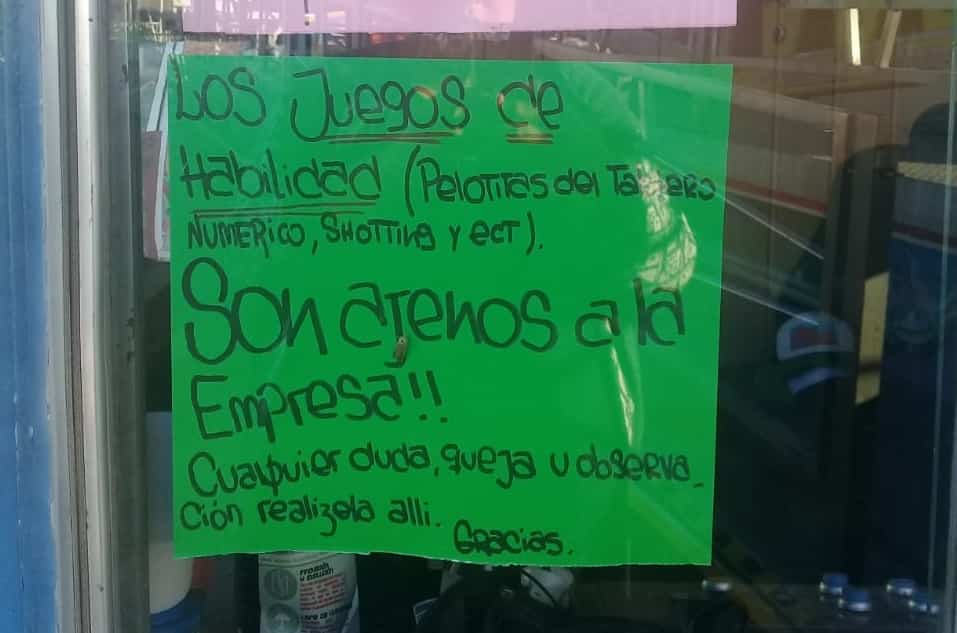 Los Juegos de
Habilidad (Pelotitas del Tablero
Numerico, Shotting y ect).
Son ajenos a la
Empresa!!
Cualquier duda, queja u observa_
ción realizola alli.
Gracias.